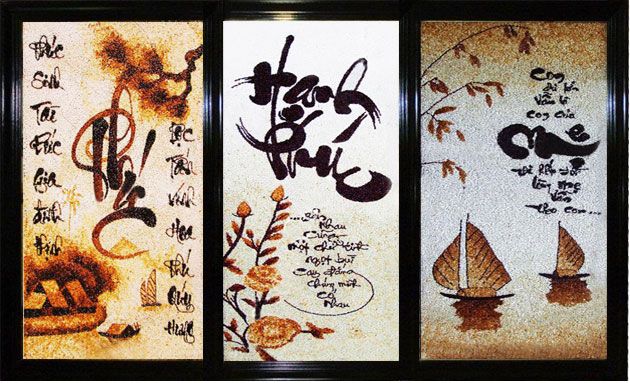 Phúc
Phúc
Sinh
Tài
Đức
Gia
Đình
Lộc
Tấn
Vinh
Hoa
Phú
Quý
Hạnh
Phúc
Nhau
Cùng
một chữ tình
Ngọt bùi
Cay đắng
Chúng mình
Có
Nhau
Con
dù lớn
vẫn là
Con của
Mẹ
đi hết đời
lòng mẹ
vẫn
theo con...